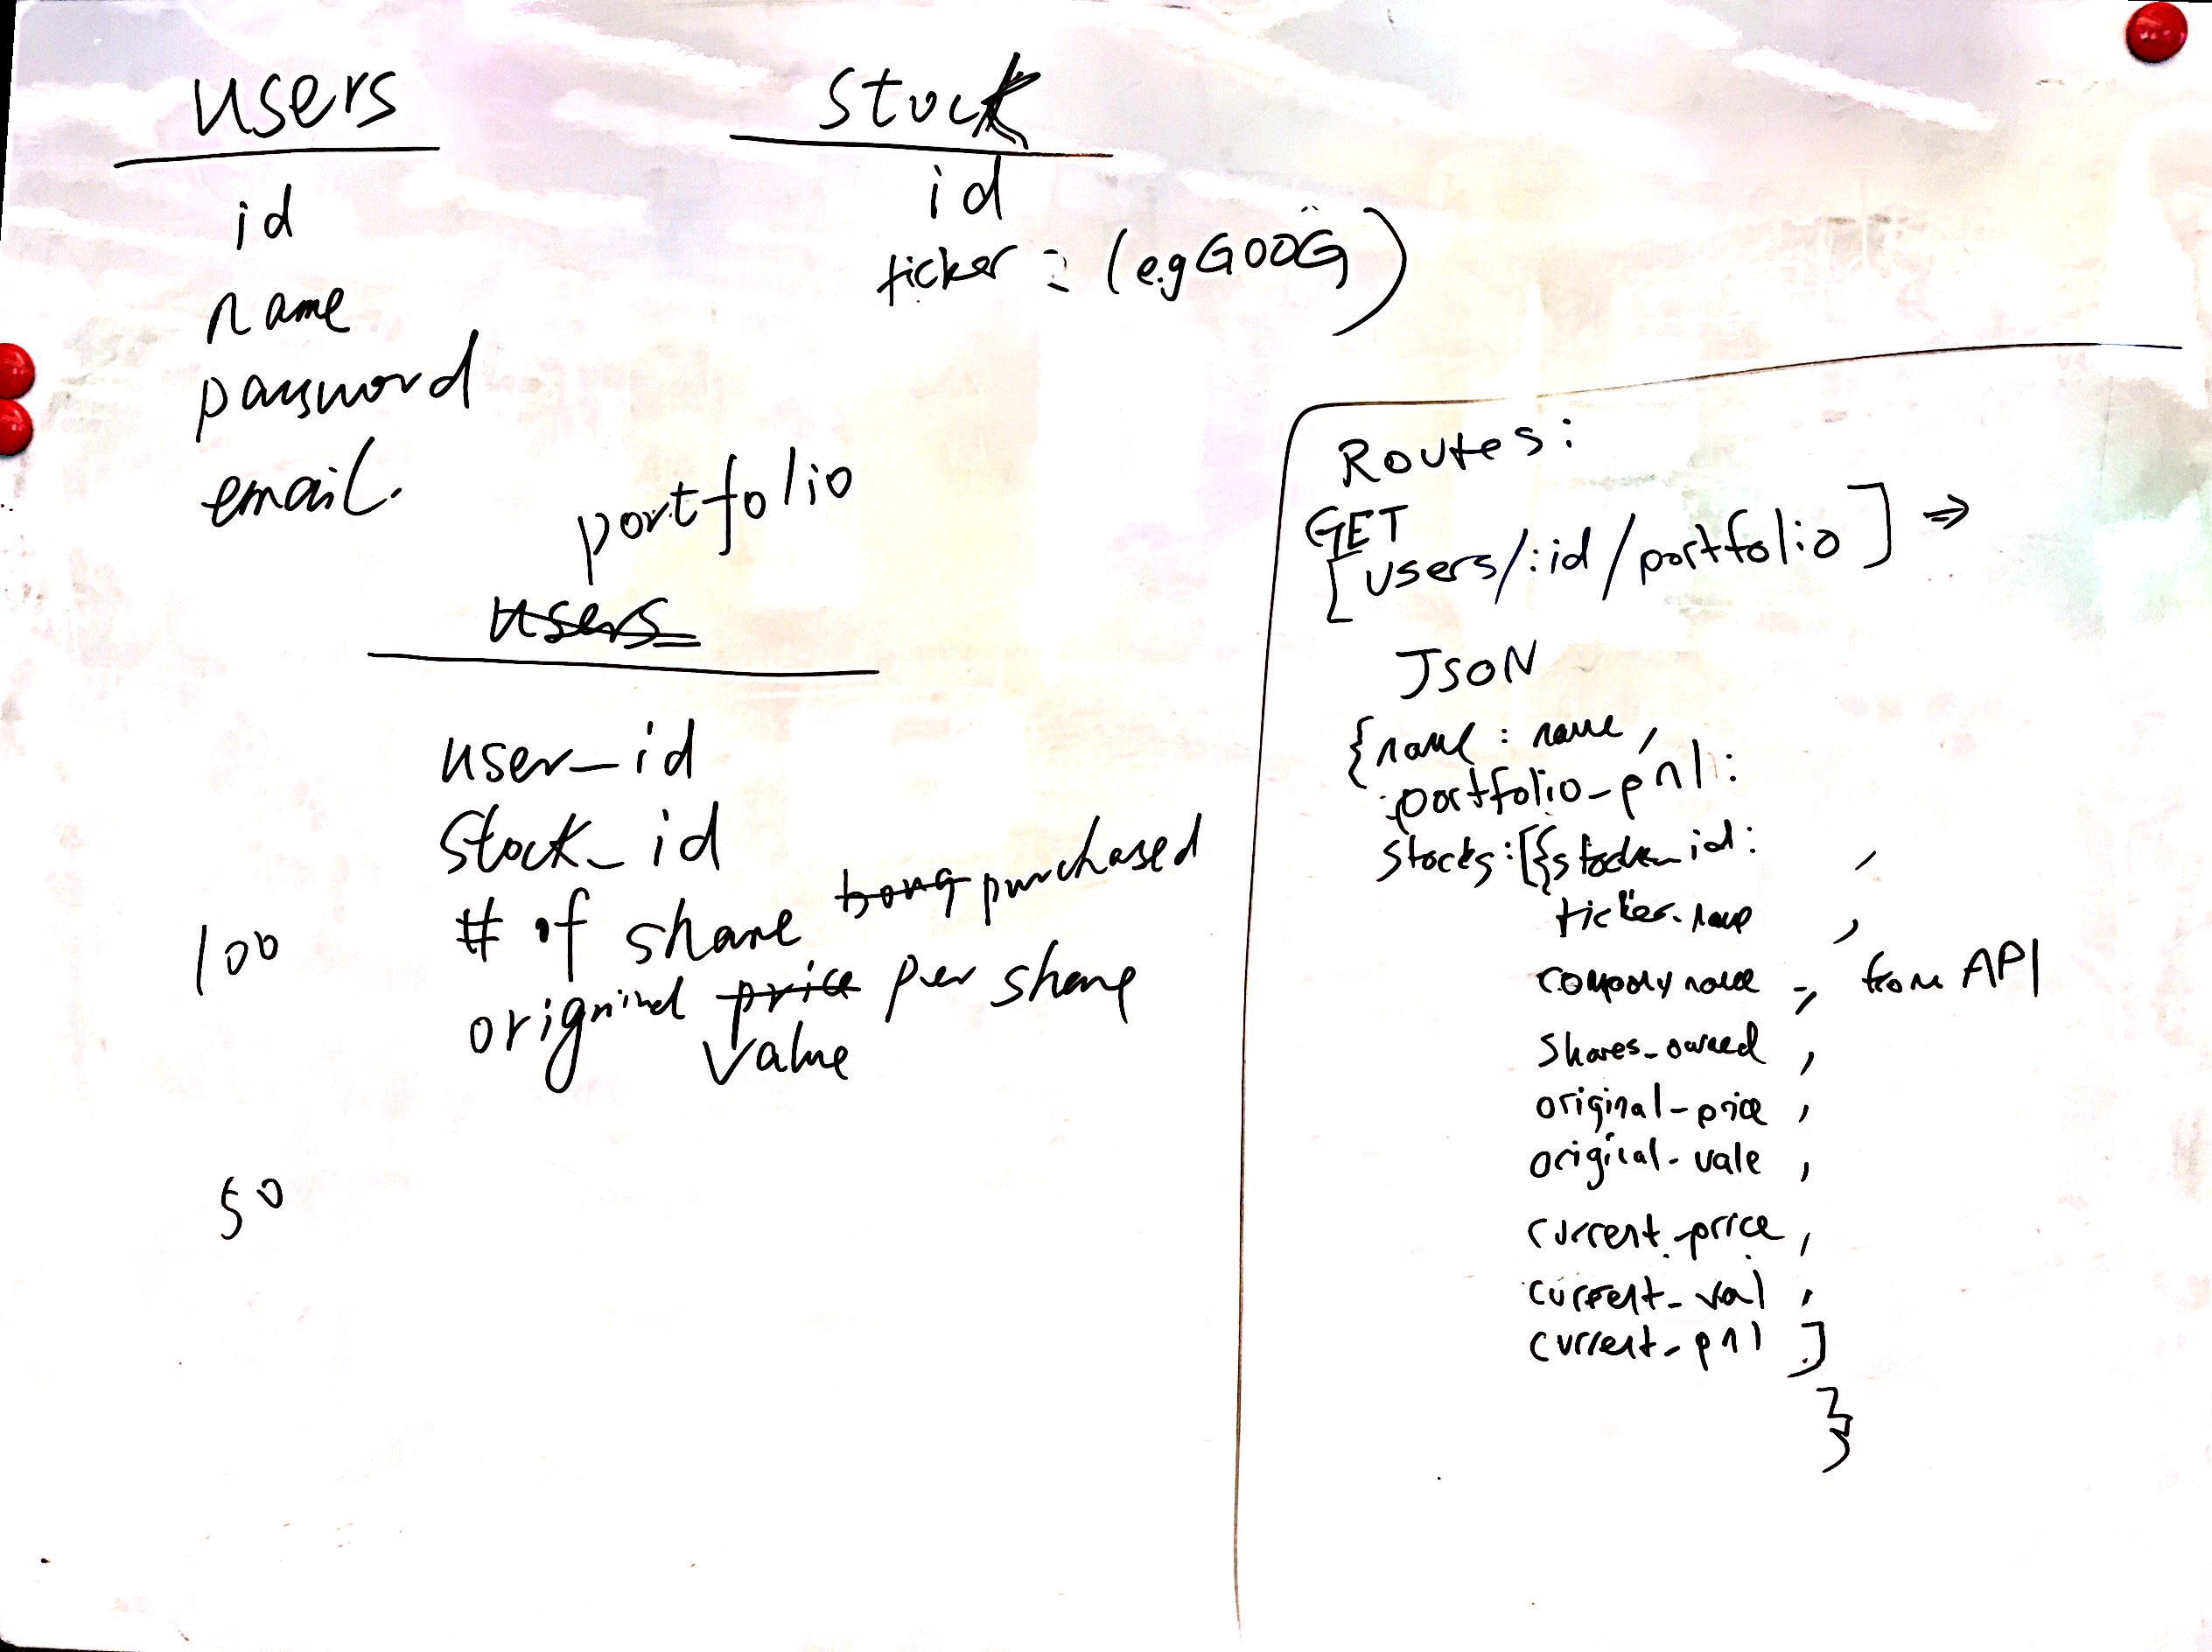 users
id
name
password
email.
stock
id
ticker = (e.g GOOG)
portfolio
users
user_id
stock_id
# of share boug purchased
100
original price per share
value
50
Routes:
GET
[users/:id/portfolio] ⇒
JSON
{name : name,
portfolio_pnl:
stocks:[{stock_id: ,
ticker_name ,
company name -, from API
shares_owned ,
original_price ,
original_vale ,
current_price ,
current_val ,
current_pnl ]
}
}